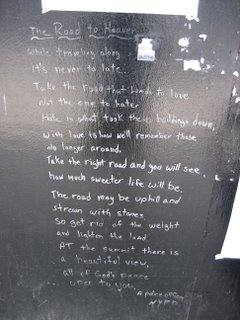 The Road to Heaven
While traveling along
It's never to late.
Take the road that leads to love
Not the one to hate
Hate is what took these buildings down,
With love is how well remember those
no longer around.
Take the right road and you will see,
how much sweeter life will be.
The road may be uphill and
strewn with stones
So get rid of the weight
and lighten the load
AT the summit there is
a beautiful view
all of God's peace
open to you.